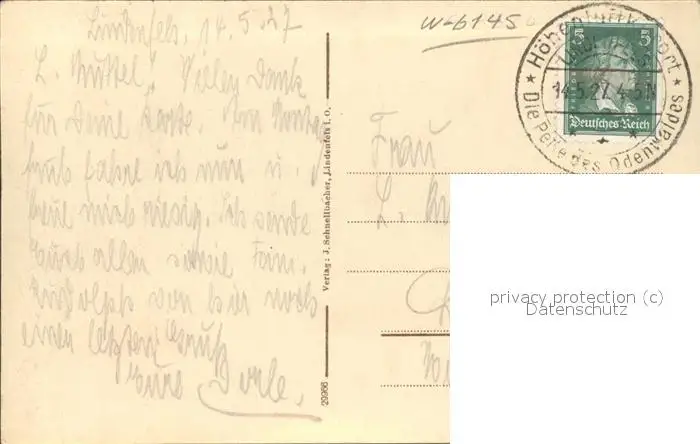 Lindenfels, 14.5.27
L. Muttel! Vielen Dank
für Deine Karte.
früh fahre ich nun u.
freue mich riesig. Ich sende
Euch allen sowie Fam.
Rudolph von hier noch
einen letzten Gruß
Eure
Verlag: J. Schnellbacher, Lindenfels i. O.
29966
w-6145
Höhenluftkurort
LINDENFELS
14.5.27. 4-5N
Die Perle des Odenwaldes
5
5
Deutsches Reich
Frau
L.
privacy protection (c)
Datenschutz